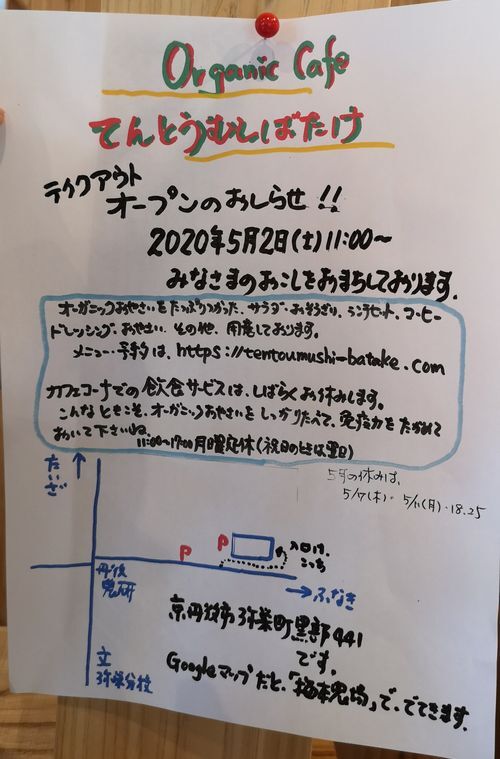 Organic Cafe
てんとうむしばたけ
テイクアウト
オープンのおしらせ!!
2020年5月2日(土)11:00〜
みなさまのおこしをおまちしております。
オーガニックおやさいをたっぷりつかった、サラダ・おそうざい、ランチセット、コーヒー
ドレッシング、おやさい、その他、用意しております。
メニュー・予約は、https://tentoumushi-batake.com
カフェコーナでの飲食サービスは、しばらくお休みします。
こんなときこそ、オーガニックおやさいをしっかりたべて、免疫力をたかめて
おいて下さいね。
11:00〜17:00 月曜定休(祝日のときは翌日)
5月の休みは、
5/7(木)・5/11(月)・18.25
たいざ
P
P
入口は、
こっち
丹後
ふなき
立
弥栄分校
京丹後市弥栄町黒部441
です。
Googleマップだと、「」で、でてきます。